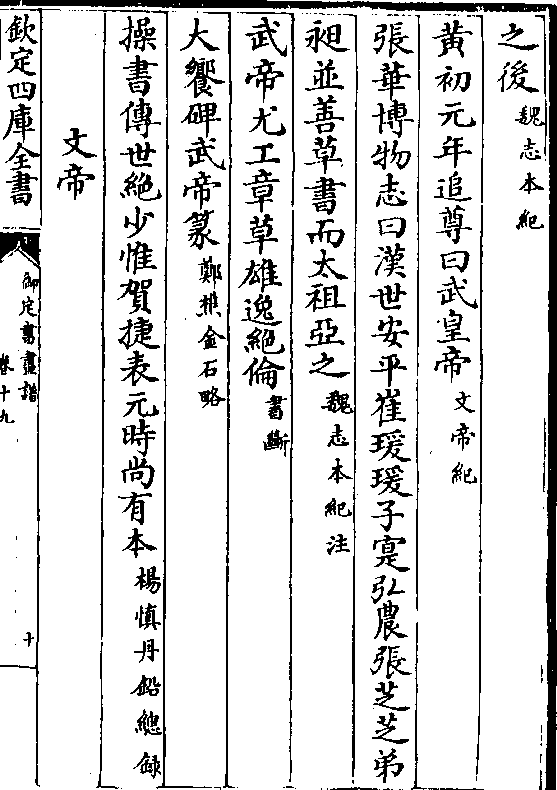 之後魏志本紀
黃初元年追尊曰武皇帝文帝紀
張華博物志曰漢世安平崔瑗瑗子寔弘農張芝芝弟
昶並善草書而太祖亞之魏志本紀注
武帝尤工章草雄逸絕倫書斷
大饗碑武帝篆鄭樵金石略
操書傳世絕少惟賀捷表元時尚有本楊慎丹鉛總錄
文帝
欽定四庫全書
御定書畫譜
卷十九
十